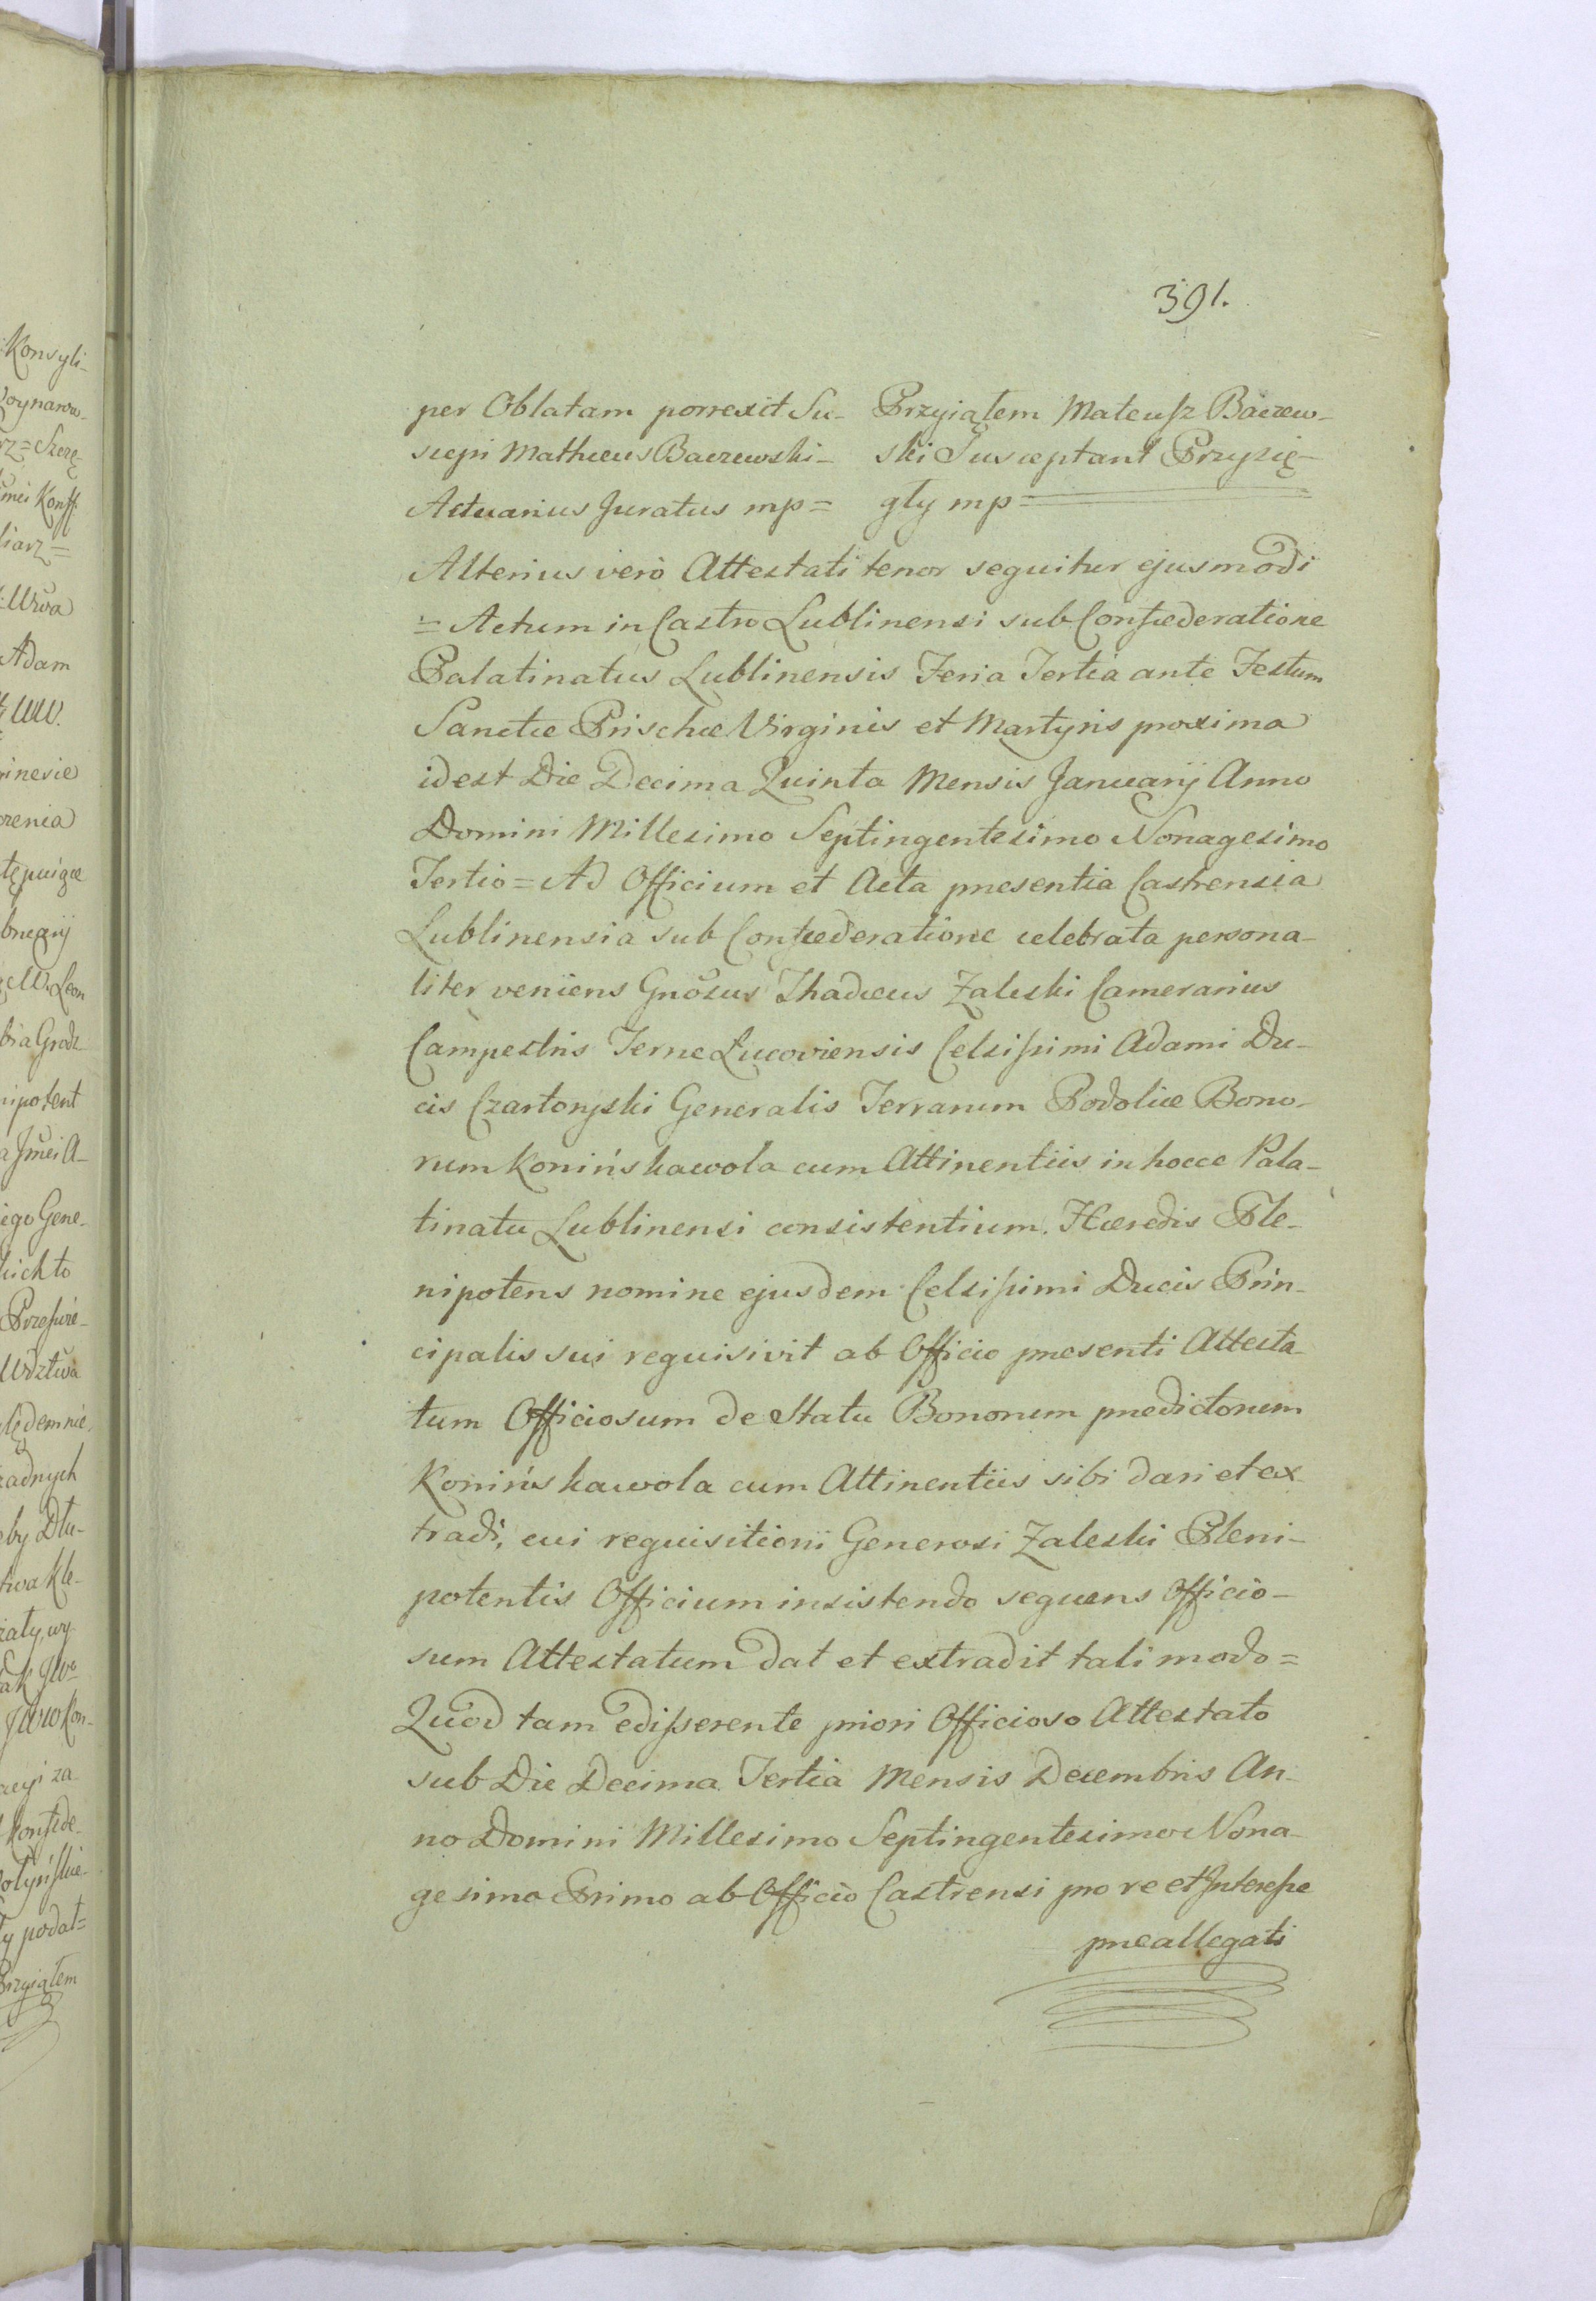 391.
per Oblatam porrexit Su-
scepi Mathæus Baczewski-
Actuarius Juratus mp=
Przyiąłem Mateusz Baczew-
ski Susceptant Przysię-
gły mp=
Alterius verò Attestati tenor sequitur ejusmodi
= Actum in Castro Lublinensi sub Confœderatione
Palatinatus Lublinensis Feria Tertia ante Festum
Sanctæ Prischæ Virginis et Martyris proxima
idest Die Decima Quinta Mensis Januarij Anno
Domini Millesimo Septingentesimo Nonagesimo
Tertio = Ad Officium et Acta præsentia Castrensia
Lublinensia sub Confœderatione celebrata persona-
liter veniens Gnosus Thadæus Zaleski Camerarius
Campestris Terræ Lucoviensis Celsissimi Adami Du-
cis Czartoryski Generalis Terrarum Podoliæ Bono-
rum Konińskawola cum Attinentiis in hocce Pala-
tinatu Lublinensi consistentium. Hæredis Ple-
nipotens nomine ejusdem Celsissimi Ducis Prin-
cipalis sui requisivit ab Officio præsenti Attesta
tum Officiosum de Statu Bonorum prædictorum
Konińskawola cum Attinentiis sibi dari et ex
tradi, cui requisitioni Generosi Zaleski Pleni-
potentis Officium insistendo sequens Officio-
sum Attestatum dat et extradit tali modo=
Quod tam edisserente priori Officioso Attestato
sub Die Decima Tertia Mensis Decembris An-
no Domini Millesimo Septingentesimo Nona-
gesimo Primo ab Officio Castrensi pro re et Interesse
præallegati
Konsyli-
Adam
nipotent
ego Gene-
by Dłu-